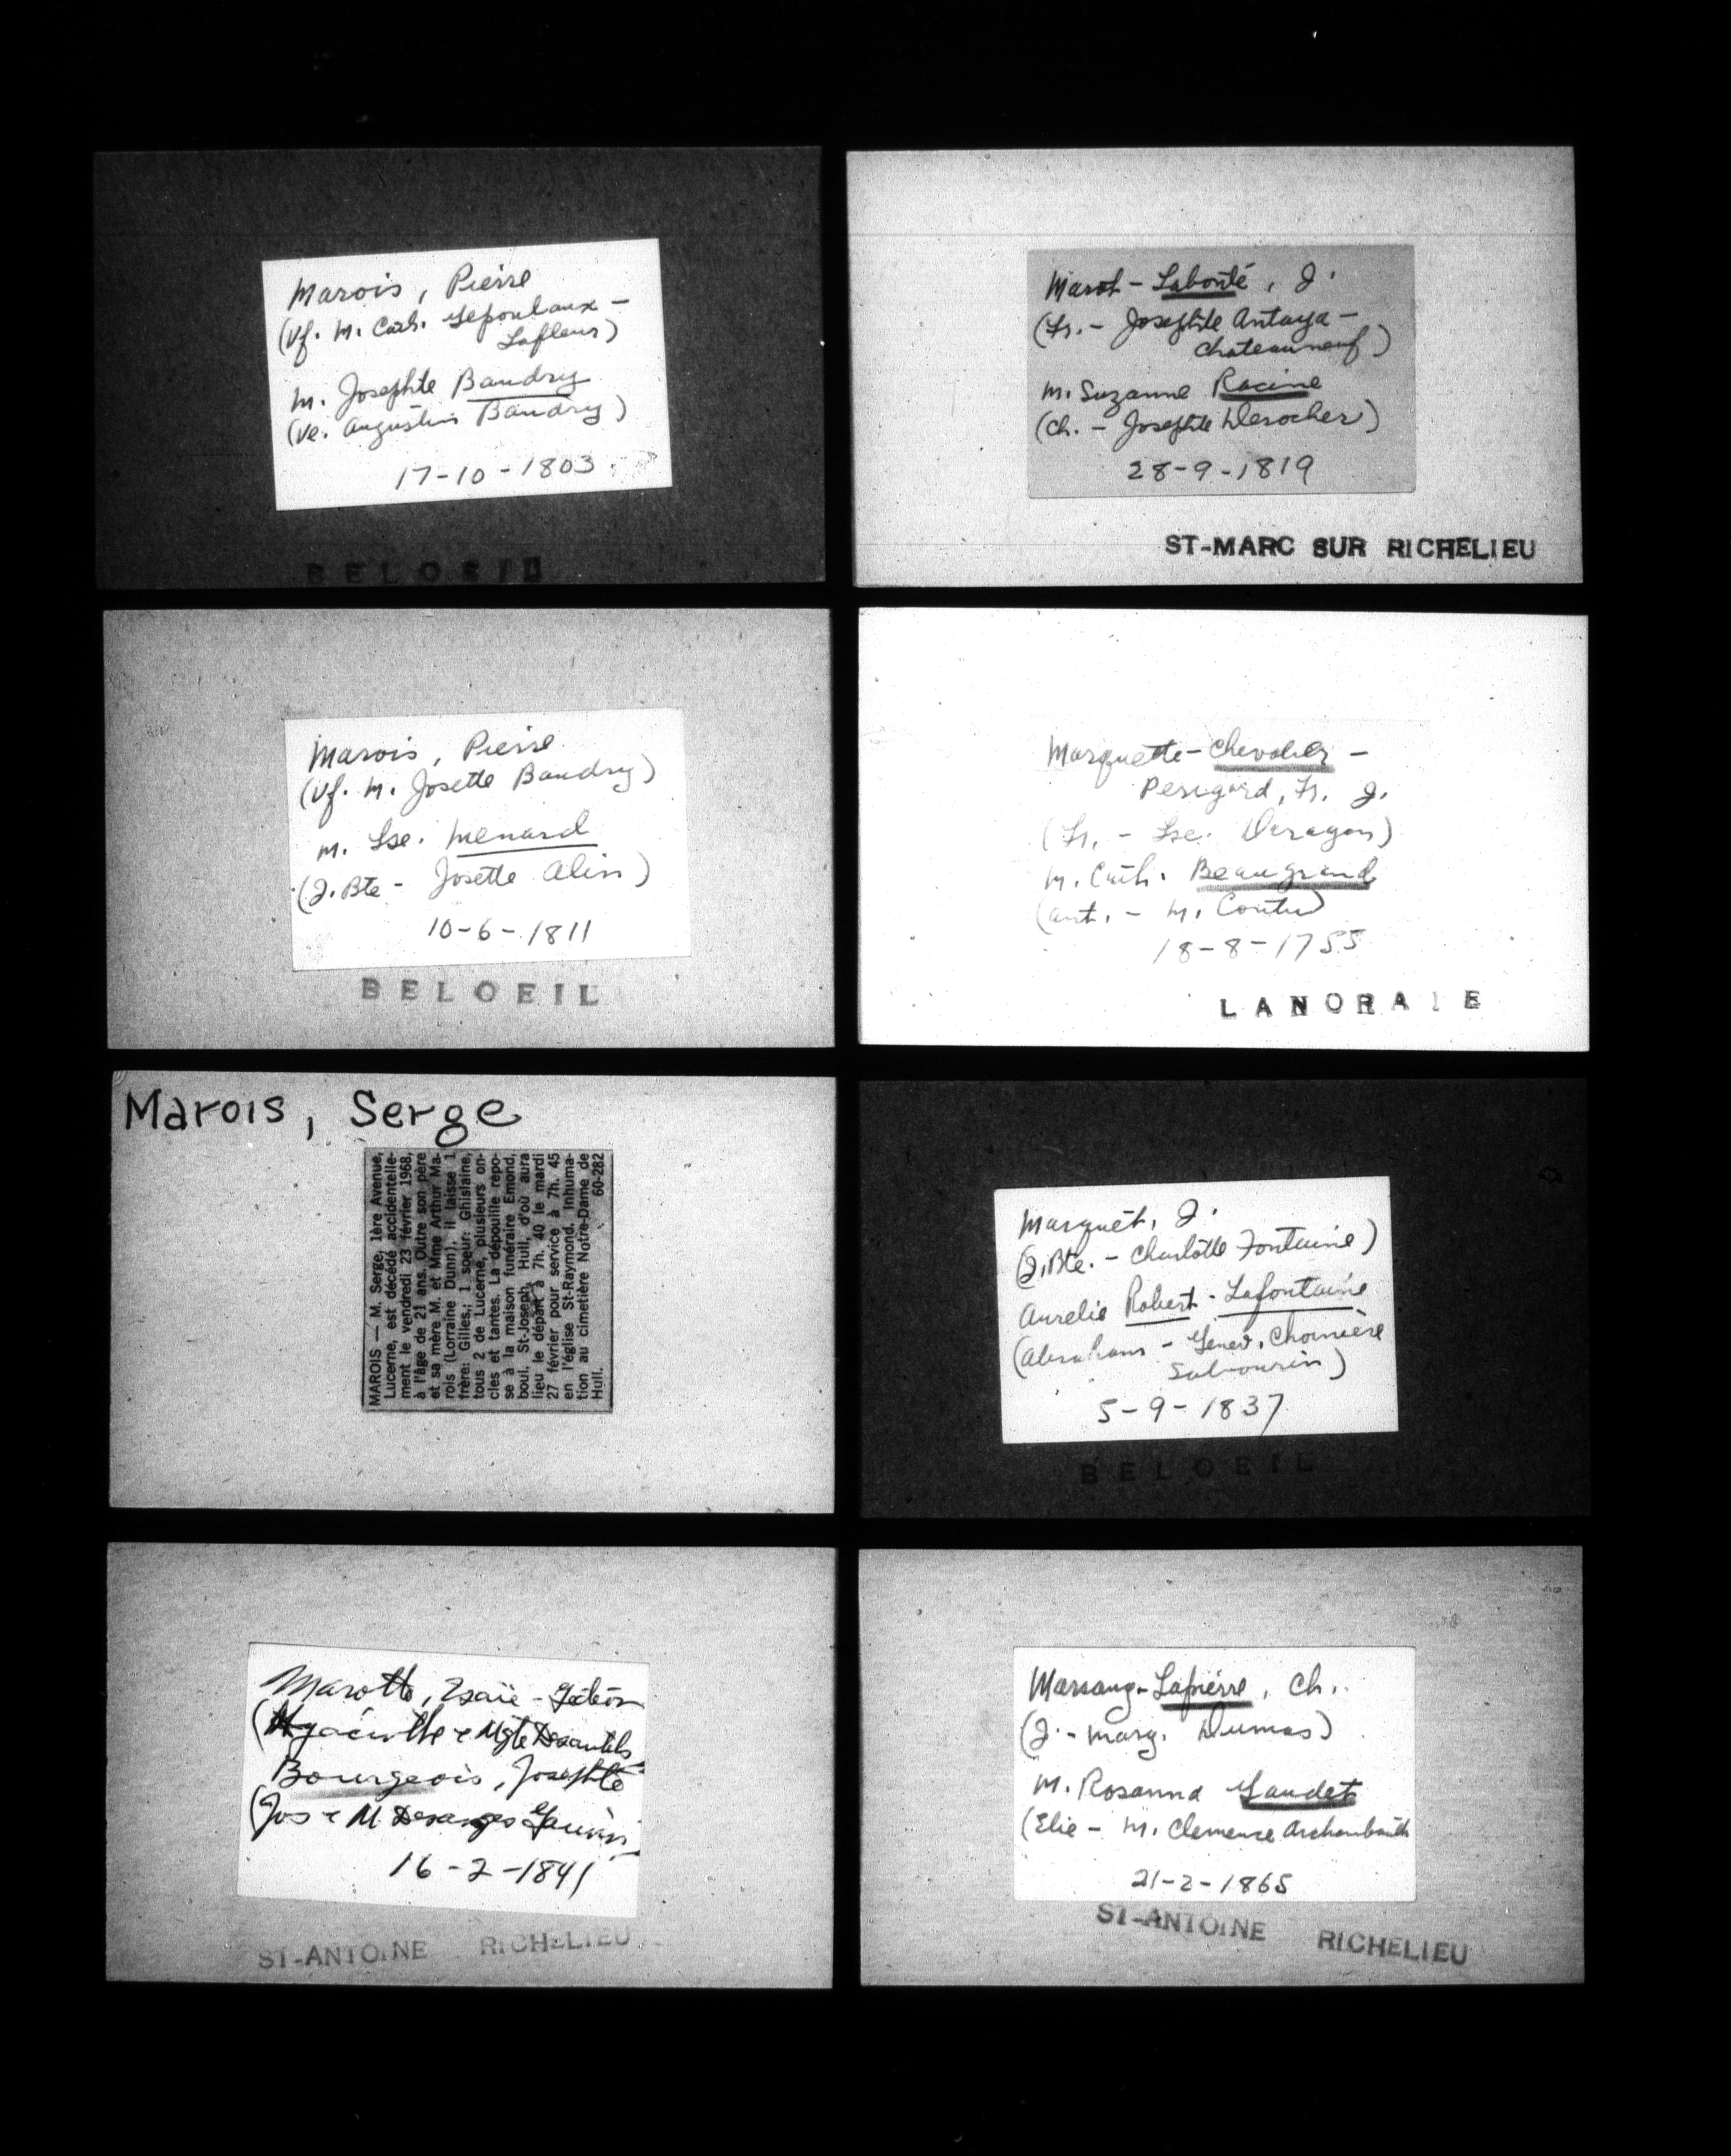 Marois, Pierre
(Vf. M. Cath. Lepoulaux -
Lafleur)
M. Josephte Baudry
(Ve. Augustin Baudry)
17-10-1803
BELOEIL
Marois, Pierre
(Vf. M. Josette Baudry)
M. Lse. Menard
(J. Bte - Josette Alin)
10-6-1811
BELOEIL
Marois, Serge
MAROIS — M. Serge, 1ère Avenue,
Lucerne, est décédé accidentelle-
ment le vendredi 23 février 1968,
à l'âge de 21 ans. Outre son père
et sa mère M. et Mme Arthur Ma-
rois (Lorraine Dunn), il laisse 1
frère: Gilles,; 1 soeur: Ghislaine,
tous 2 de Lucerne, plusieurs on-
cles et tantes. La dépouille repo-
se à la maison funéraire Emond,
boul. St-Joseph, Hull, d'où aura
lieu le départ à 7h. 40 le mardi
27 février pour service à 7h. 45
en l'église St-Raymond. Inhuma-
tion au cimetière Notre-Dame de
Hull. 60-282
Marotte, Isaïe - Gédéon
(Hyacinthe & Mgte Desautels
Bourgeois, Josephte
(Jos & M Desanges Gauvin
16-2-1841
ST-ANTOINE RICHELIEU
Marot - Labonté, J.
(Fr. - Josephte Antaya -
Chateauneuf)
M. Suzanne Racine
(Ch. - Josephte Derocher)
28-9-1819
ST-MARC SUR RICHELIEU
Marquette - Chevalier -
Perigord, Fr. J.
(Fr. - Lse. Deragon)
M. Cath. Beaugrand
(Ant. - M. Coutu)
18-8-1755
LANORAIE
Marquet, J.
(J. Bte. - Charlotte Fontaine)
Aurelie Robert - Lafontaine
(Abraham - Genev. Choinière
Sabourin)
5-9-1837
BELOEIL
Marsang - Lapierre, Ch.
(J. - Marg. Dumas)
M. Rosanna Gaudet
(Elie - M. Clemence Archambault
21-2-1865
ST-ANTOINE RICHELIEU